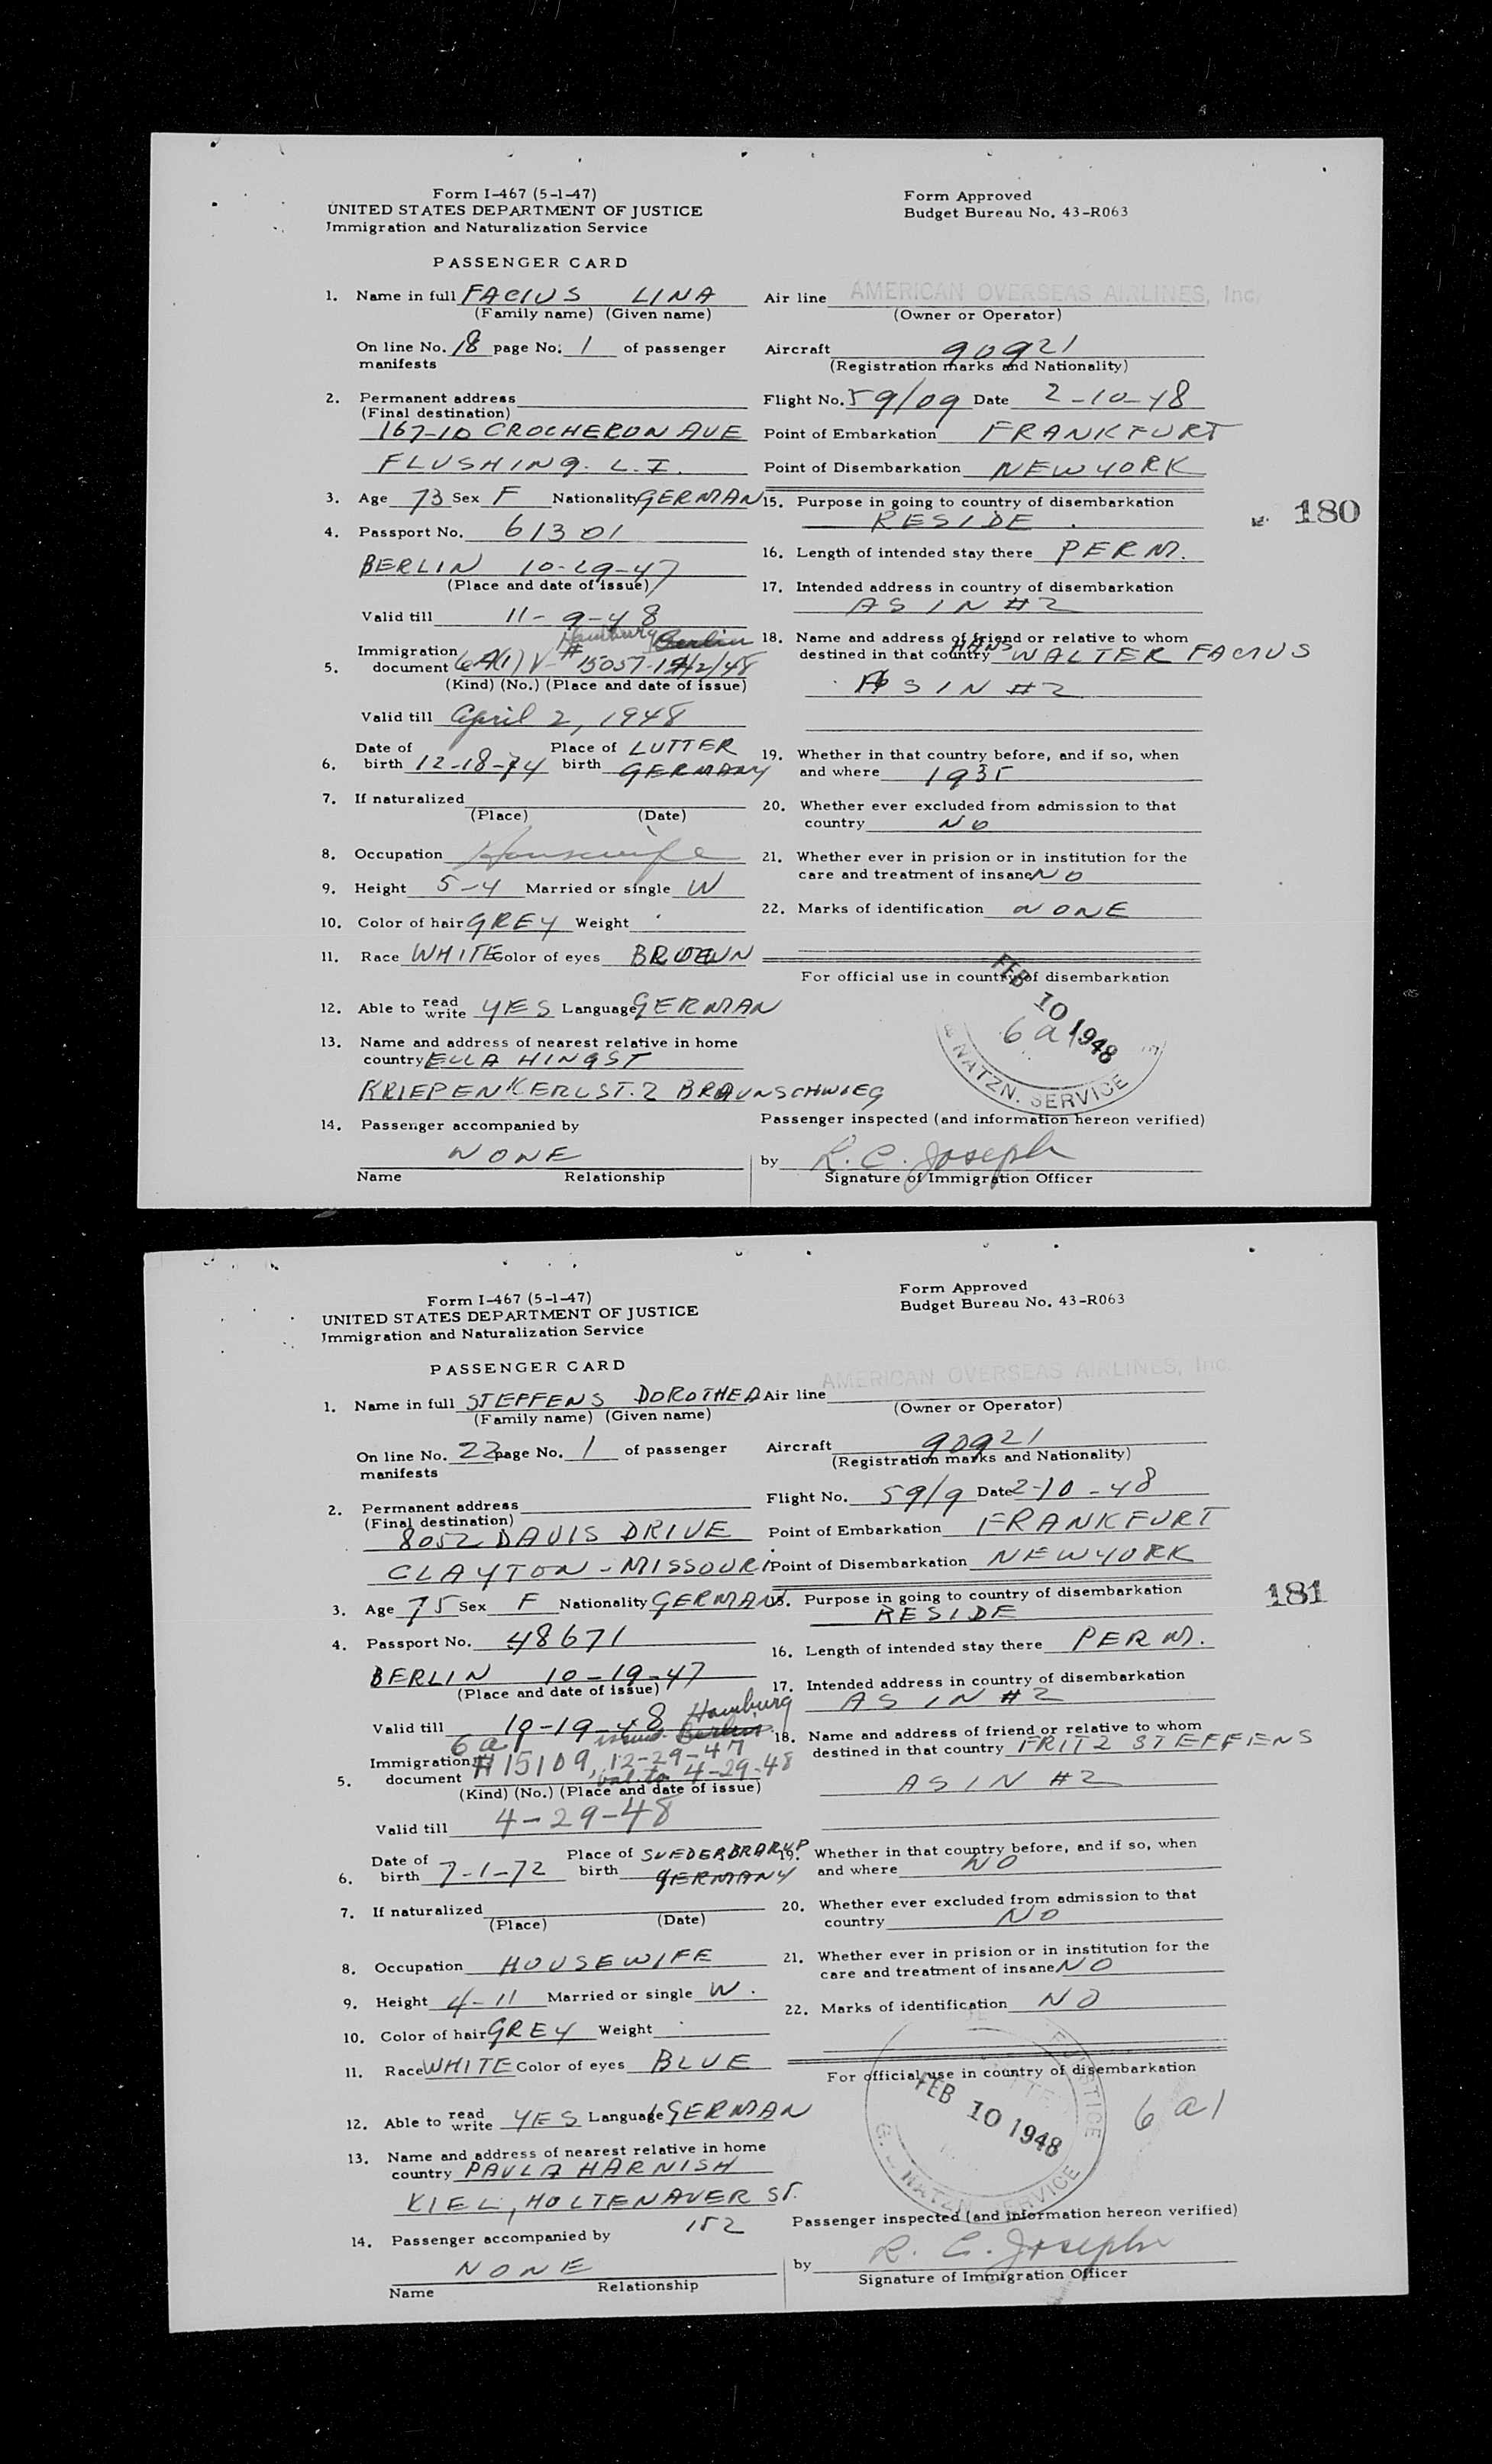 Form I-467 (5-1-47)
UNITED STATES DEPARTMENT OF JUSTICE
Immigration and Naturalization Service
Form Approved
Budget Bureau No. 43-R063
PASSENGER CARD
1. Name in full FACIUS LINA
(Family name) (Given name)
On line No. 18 page No. 1 of passenger
manifests
2. Permanent address
(Final destination)
167-10 CROCHERON AVE
FLUSHING. L.I.
3. Age 73 Sex F Nationality GERMAN
4. Passport No. 61301
BERLIN 10-29-47
(Place and date of issue)
Valid till 11-9-48
Hamburg Berlin
Immigration
5. document 6A(1) V- # 15057-
(Kind) (No.) (Place and date of issue)
Valid till April 2, 1948
Date of Place of LUTTER
6. birth 12-18-74 birth GERMANY
7. If naturalized
(Place) (Date)
8. Occupation Housewife
9. Height 5-4 Married or single W
10. Color of hair GREY Weight
11. Race WHITE Color of eyes BROWN
12. Able to read write YES Language GERMAN
13. Name and address of nearest relative in home
country ELLA HINGST
KRIEPENKERLST. 2 BRAUNSCHWIEG
14. Passenger accompanied by
NONE
Name Relationship
Air line AMERICAN OVERSEAS AIRLINES, Inc.
(Owner or Operator)
Aircraft 90921
(Registration marks and Nationality)
Flight No. 59/09 Date 2-10-48
Point of Embarkation FRANKFURT
Point of Disembarkation NEW YORK
15. Purpose in going to country of disembarkation
RESIDE
16. Length of intended stay there PERM.
17. Intended address in country of disembarkation
AS IN #2
18. Name and address of friend or relative to whom
destined in that country HANS WALTER FACIUS
AS IN #2
19. Whether in that country before, and if so, when
and where 1935
20. Whether ever excluded from admission to that
country NO
21. Whether ever in prision or in institution for the
care and treatment of insane NO
22. Marks of identification NONE
For official use in country of disembarkation
FEB 10 1948
6 a 1
& NATZN. SERVICE
Passenger inspected (and information hereon verified)
by R. C. Joseph
Signature of Immigration Officer
180
Form I-467 (5-1-47)
UNITED STATES DEPARTMENT OF JUSTICE
Immigration and Naturalization Service
Form Approved
Budget Bureau No. 43-R063
PASSENGER CARD
1. Name in full STEFFENS DOROTHEA
(Family name) (Given name)
On line No. 22 page No. 1 of passenger
manifests
2. Permanent address
(Final destination)
8052 DAVIS DRIVE
CLAYTON - MISSOURI
3. Age 75 Sex F Nationality GERMAN
4. Passport No. 48671
BERLIN 10-19-47
(Place and date of issue)
Valid till 10-19-48
Hamburg
6 a 1 issued Berlin
Immigration
5. document # 15109, 12-29-47
val. to 4-29-48
(Kind) (No.) (Place and date of issue)
Valid till 4-29-48
Date of Place of SUEDERBRARUP
6. birth 7-1-72 birth GERMANY
7. If naturalized
(Place) (Date)
8. Occupation HOUSEWIFE
9. Height 4-11 Married or single W.
10. Color of hair GREY Weight
11. Race WHITE Color of eyes BLUE
12. Able to read write YES Language GERMAN
13. Name and address of nearest relative in home
country PAULA HARNISH
KIEL, HOLTENAUER ST.
152
14. Passenger accompanied by
NONE
Name Relationship
Air line AMERICAN OVERSEAS AIRLINES, Inc.
(Owner or Operator)
Aircraft 90921
(Registration marks and Nationality)
Flight No. 59/9 Date 2-10-48
Point of Embarkation FRANKFURT
Point of Disembarkation NEW YORK
15. Purpose in going to country of disembarkation
RESIDE
16. Length of intended stay there PERM.
17. Intended address in country of disembarkation
AS IN #2
18. Name and address of friend or relative to whom
destined in that country FRITZ STEFFENS
AS IN #2
19. Whether in that country before, and if so, when
and where NO
20. Whether ever excluded from admission to that
country NO
21. Whether ever in prision or in institution for the
care and treatment of insane NO
22. Marks of identification NO
For official use in country of disembarkation
FEB 10 1948
6 a 1
NATZN. SERVICE
Passenger inspected (and information hereon verified)
by R. C. Joseph
Signature of Immigration Officer
181